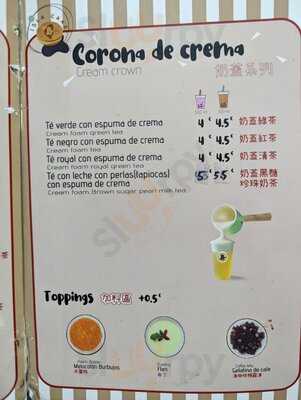 Corona de crema
Cream crown
奶蓋系列
Té verde con espuma de crema 4€ 4.5€ 奶蓋綠茶
Cream foam green tea
Té negro con espuma de crema 4€ 4.5€ 奶蓋紅茶
Cream foam tea
Té royal con espuma de crema 4€ 4.5€ 奶蓋清茶
Cream foam royal green tea
Té con leche con perlas(tapiocas) 5€ 5.5€ 奶蓋黑糖
con espuma de crema 珍珠奶茶
Cream foam Brown sugar pearl milk tea
Toppings 加料區 +0.5€
Melocotón Burbujas
Pudding
Flan
布丁
Coffee Jelly
Gelatina de café